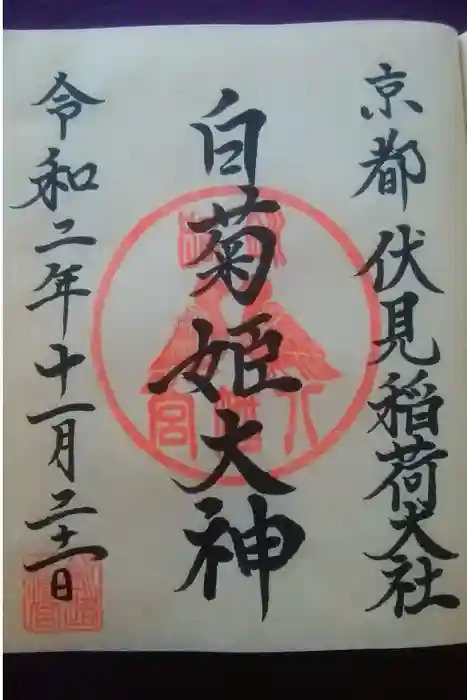 京都伏見稲荷大社
白菊姫大神
令和二年十一月二十一日
八幡宮